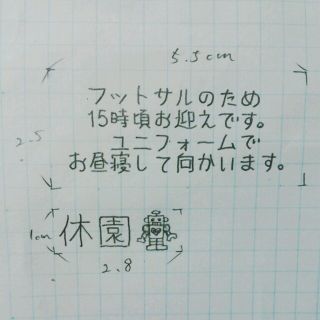 5.5cm
フットサルのため
15時頃お迎えです。
2.5
ユニフォームで
お昼寝して向かいます。
1cm
休園
2.8